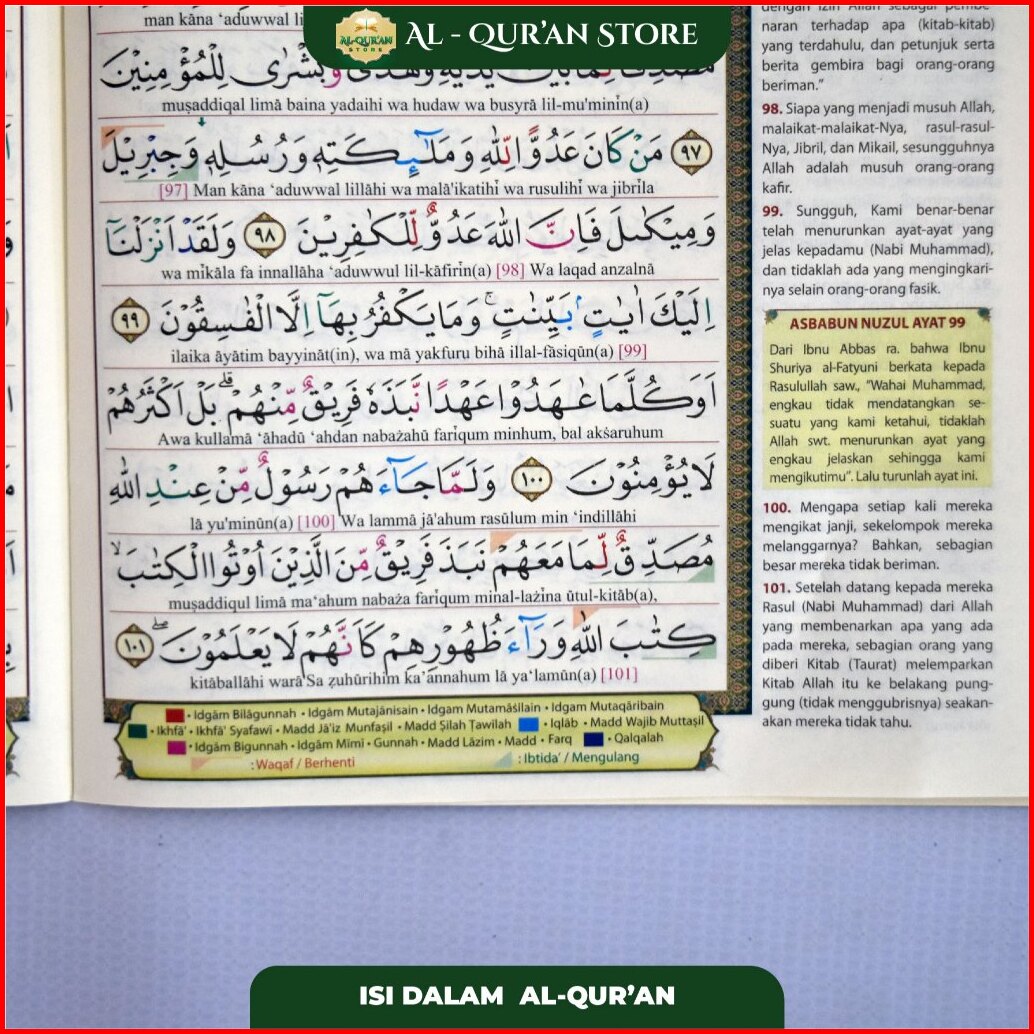 AL-QUR'AN STORE
AL - QUR'AN STORE
man kāna 'aduwwal li
مُصَدِّقًا لِّمَا بَيْنَ يَدَيْهِ وَهُدًى وَّبُشْرٰى لِلْمُؤْمِنِيْنَ
muṣaddiqal limā baina yadaihi wa hudaw wa busyrā lil-mu'minīn(a)
٩٧ مَنْ كَانَ عَدُوًّا لِّلّٰهِ وَمَلٰۤىِٕكَتِهٖ وَرُسُلِهٖ وَجِبْرِيْلَ
[97] Man kāna 'aduwwal lillāhi wa malā'ikatihī wa rusulihī wa jibrīla
وَمِيْكٰىلَ فَاِنَّ اللّٰهَ عَدُوٌّ لِّلْكٰفِرِيْنَ ٩٨ وَلَقَدْ اَنْزَلْنَآ
wa mīkāla fa innallāha 'aduwwul lil-kāfirīn(a) [98] Wa laqad anzalnā
اِلَيْكَ اٰيٰتٍۢ بَيِّنٰتٍۚ وَمَا يَكْفُرُ بِهَآ اِلَّا الْفٰسِقُوْنَ ٩٩
ilaika āyātim bayyināt(in), wa mā yakfuru bihā illal-fāsiqūn(a) [99]
اَوَكُلَّمَا عٰهَدُوْا عَهْدًا نَّبَذَهٗ فَرِيْقٌ مِّنْهُمْۗ بَلْ اَكْثَرُهُمْ
Awa kullamā 'āhadū 'ahdan nabażahū farīqum minhum, bal akṡaruhum
لَا يُؤْمِنُوْنَ ١٠٠ وَلَمَّا جَاۤءَهُمْ رَسُوْلٌ مِّنْ عِنْدِ اللّٰهِ
lā yu'minūn(a) [100] Wa lammā jā'ahum rasūlum min 'indillāhi
مُصَدِّقٌ لِّمَا مَعَهُمْ نَبَذَ فَرِيْقٌ مِّنَ الَّذِيْنَ اُوْتُوا الْكِتٰبَۙ
muṣaddiqul limā ma'ahum nabaża farīqum minal-lażīna ūtul-kitāb(a),
كِتٰبَ اللّٰهِ وَرَاۤءَ ظُهُوْرِهِمْ كَاَنَّهُمْ لَا يَعْلَمُوْنَۖ ١٠١
kitāballāhi warā'Sa ẓuhūrihim ka'annahum lā ya'lamūn(a) [101]
• Idgām Bilāgunnah • Idgām Mutajānisain • Idgam Mutamāṡilain • Idgam Mutaqāribain
• Ikhfā' • Ikhfā' Syafawī • Madd Jā'iz Munfaṣil • Madd Ṣilah Ṭawilah • Iqlāb • Madd Wajib Muttaṣil
• Idgām Bigunnah • Idgām Mīmī • Gunnah • Madd Lāzim • Madd • Farq • Qalqalah
: Waqaf / Berhenti : Ibtida' / Mengulang
dengan izin Allah sebagai pembe-
naran terhadap apa (kitab-kitab)
yang terdahulu, dan petunjuk serta
berita gembira bagi orang-orang
beriman."
98. Siapa yang menjadi musuh Allah,
malaikat-malaikat-Nya, rasul-rasul-
Nya, Jibril, dan Mikail, sesungguhnya
Allah adalah musuh orang-orang
kafir.
99. Sungguh, Kami benar-benar
telah menurunkan ayat-ayat yang
jelas kepadamu (Nabi Muhammad),
dan tidaklah ada yang mengingkari-
nya selain orang-orang fasik.
ASBABUN NUZUL AYAT 99
Dari Ibnu Abbas ra. bahwa Ibnu
Shuriya al-Fatyuni berkata kepada
Rasulullah saw., "Wahai Muhammad,
engkau tidak mendatangkan se-
suatu yang kami ketahui, tidaklah
Allah swt. menurunkan ayat yang
engkau jelaskan sehingga kami
mengikutimu". Lalu turunlah ayat ini.
100. Mengapa setiap kali mereka
mengikat janji, sekelompok mereka
melanggarnya? Bahkan, sebagian
besar mereka tidak beriman.
101. Setelah datang kepada mereka
Rasul (Nabi Muhammad) dari Allah
yang membenarkan apa yang ada
pada mereka, sebagian orang yang
diberi Kitab (Taurat) melemparkan
Kitab Allah itu ke belakang pung-
gung (tidak menggubrisnya) seakan-
akan mereka tidak tahu.
ISI DALAM AL-QUR'AN